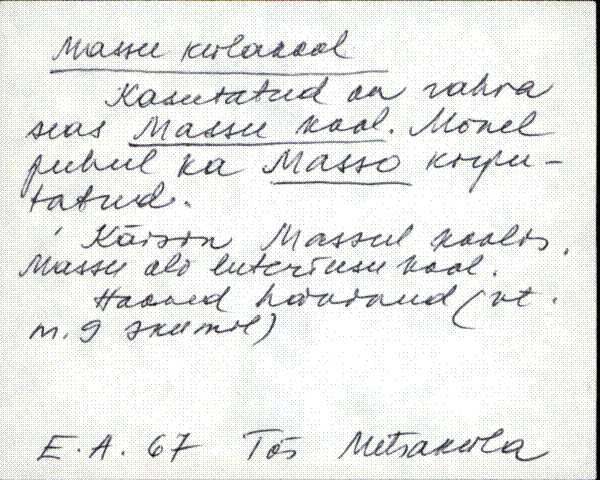 Massu külakool
Kasutatud on rahva
seas Massu kool. Mõnel
puhul ka Masso kirju-
tatud.
Käisin Massul koolis.
Massu oli luteriusu kool.
Hooned hävinud (vt.
m. 9 skeemil)
E.A. 67 Tõs Metsaküla